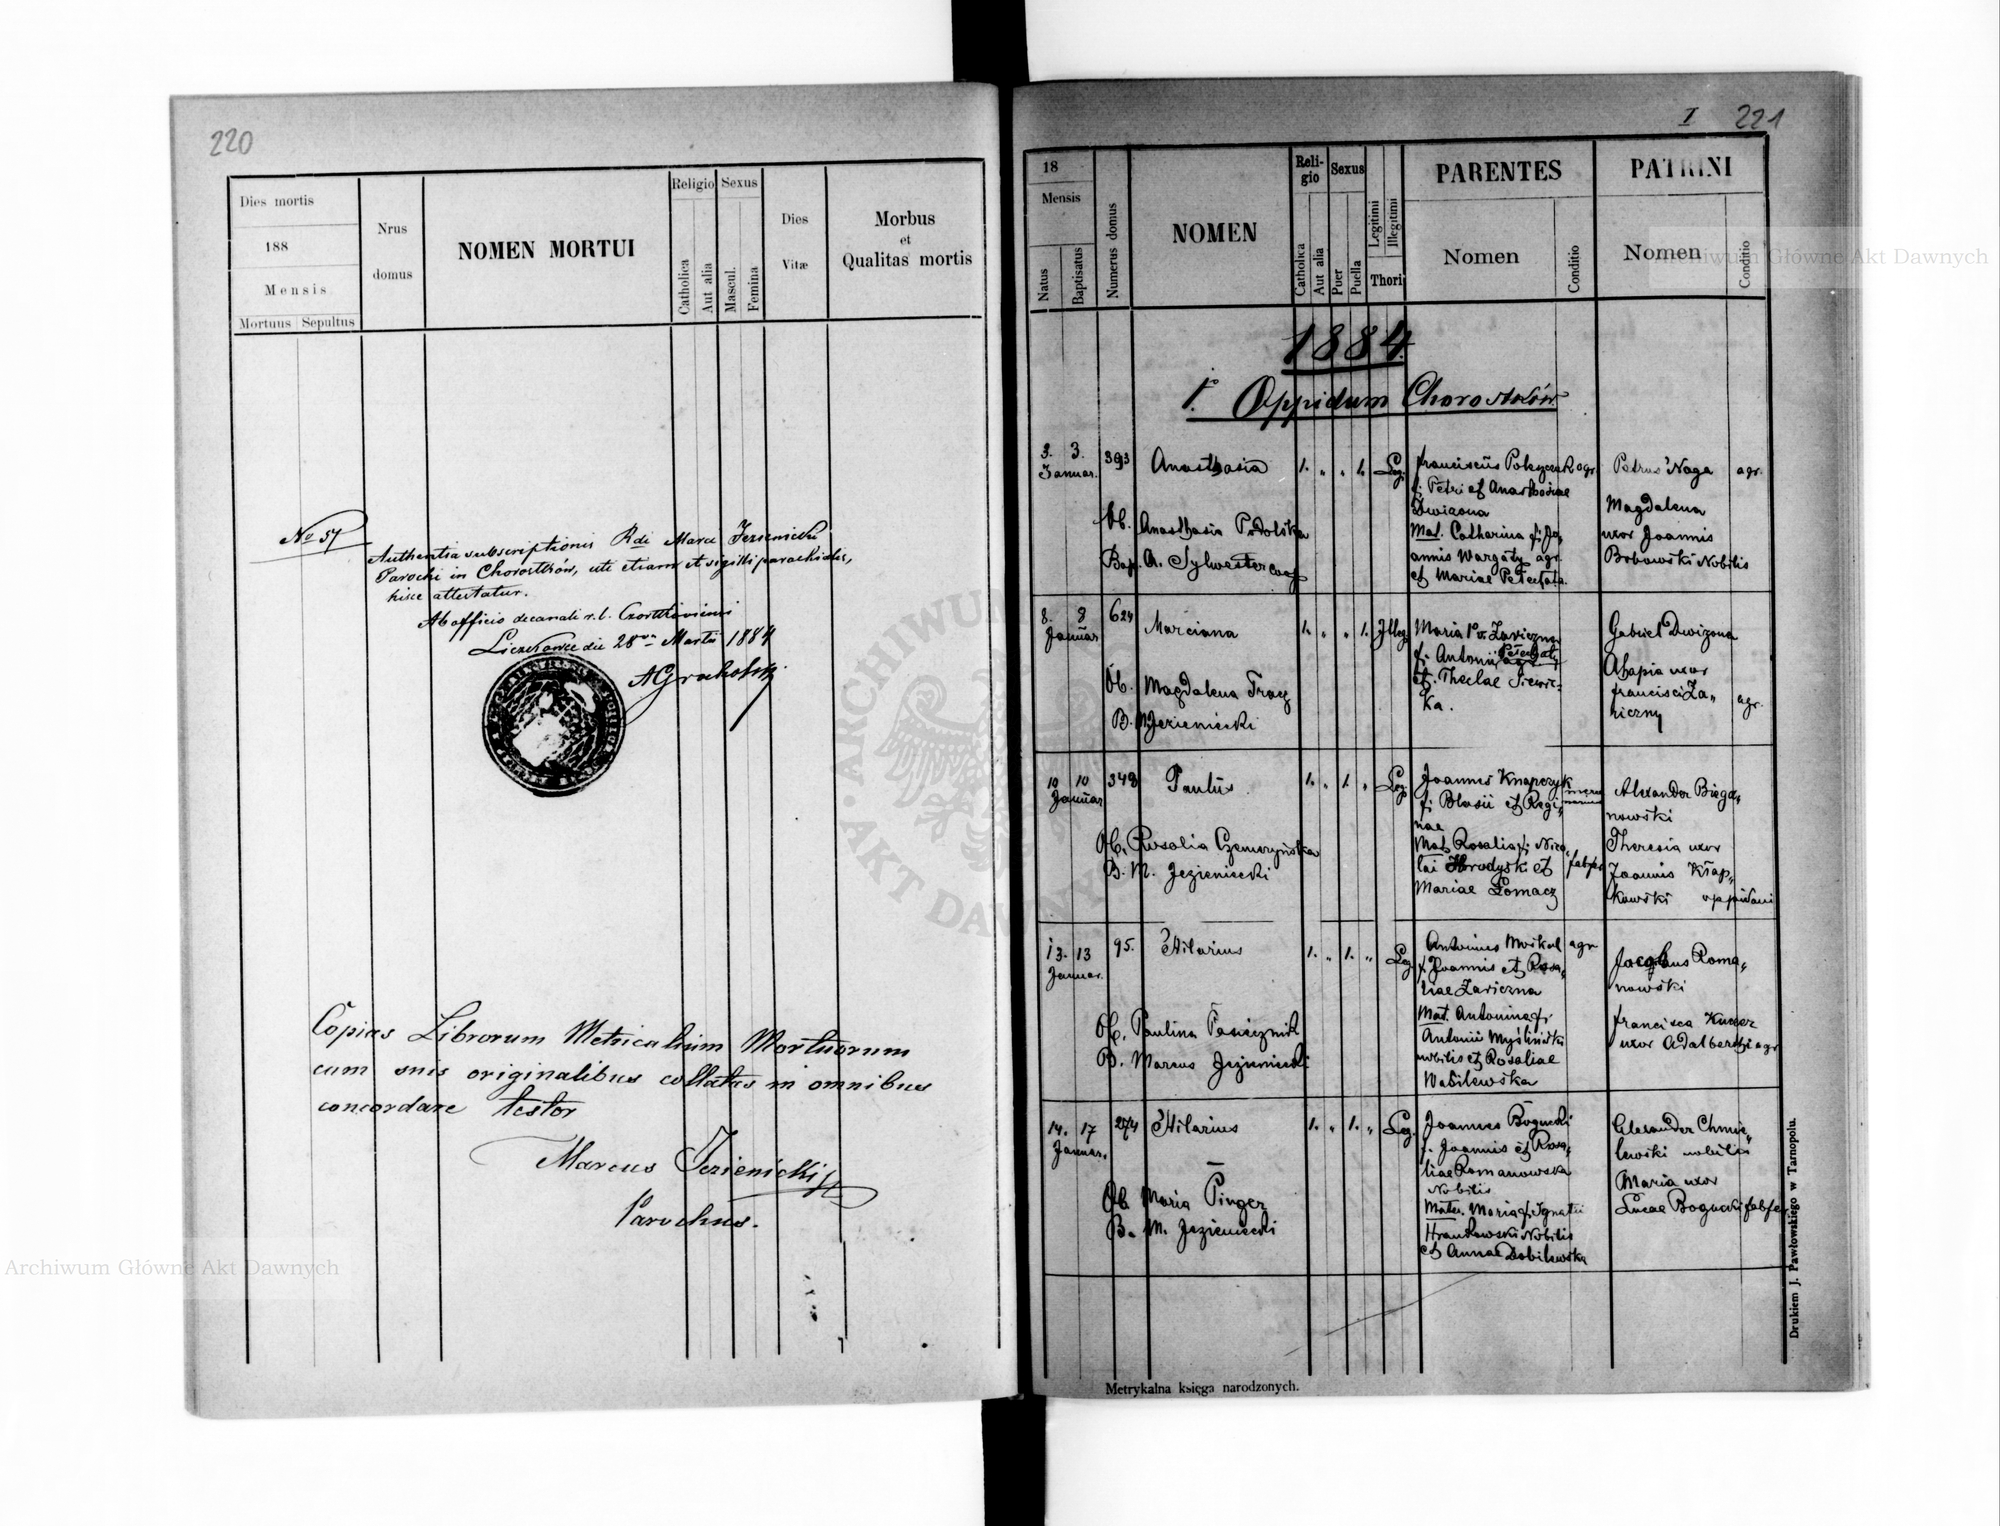 220
Dies mortis
188
Mensis
Mortuus Sepultus
Nrus
domus
NOMEN MORTUI
Religio
Catholica
Aut alia
Sexus
Mascul.
Femina
Dies
Vitæ
Morbus
et
Qualitas mortis
No 57
Authentia subscriptionis Rdi Marci Jezienicki
Parochi in Chorostków, uti etiam et sigilli parochialis,
hisce attestatur.
Ab officio decanali r. l. Czortkoviensi
Liczkowce die 28 Martii 1884
Copias Librorum Metricalium Mortuorum
cum suis originalibus collatas in omnibus
concordare testor
Marcus Jezienicki
Parochus.
I 221
18
Mensis
Natus
Baptisatus
Numerus domus
NOMEN
Reli-
gio
Catholica
Aut alia
Sexus
Puer
Puella
Legitimi
Illegitimi
Thori
PARENTES
Nomen
Conditio
PATRINI
Nomen
Conditio
1884
1. Oppidum Chorostków
3. 3.
Januar.
393
Anasthasia
1. „ „ 1.
Leg.
Franciscus agr.
f. Petri et Anasthasiae
Mat. Catharina f. Jo„
annis Wargaty agr.
et Mariae
Petrus Naga agr.
Magdalena
uxor Joannis
Bobowski Nobilis
Ob. Anasthasia Podolska
Bap. A. Sylwester coop
8. 8
Januar
624
Marciana
1. „ „ 1.
Illeg.
Maria 1o v. Zariczna
f. Antonii
et. Theclae Siewic-
ka.
Gabriel Dwizona
Ahapia uxor
Francisci Za„
riczny
agr.
Ob. Magdalena Tracz
B. M Jezienicki
10 10
Januar
348
Paulus
1. „ 1. „
Leg.
Joannes Knapczyk
f. Blasii et Regi„
nae
Mat. Rosalia f. Nico„
lai Hrodysk et
Mariae Lomacz
Alexander Biega„
nowski
Theresia uxor
Joannis Kłap„
kowski oppidani
Ob. Rosalia Czemryńska
B. M. Jezienicki
13. 13
Januar.
95.
Hilarius
1. „ 1. „
Leg.
Antonius Moskal agr
f. Joannis et Rosa„
liae Zariczna
Mat. Antonina f.
Antonii Myśliński
nobilis et Rosaliae
Wasilewska
Jacobus Roma„
nowski
Francisca Kucer
uxor Adalberti agr
Ob. Paulina Pasicznik
B. Marcus Jezienicki
14. 17
Januar.
274
Hilarius
1. „ 1. „
Leg.
Joannes Bogucki
f. Joannis et Rosa„
liae Romanowska
Nobilis
Mater. Maria f. Ignatii
Nobilis
et Annae Dobilewska
Alexander Chmie„
lewski nobilis
Maria uxor
Lucae Bogucki fabfer
Ob. Maria Pinger
B. M. Jezienicki
Metrykalna księga narodzonych.
Drukiem J. Pawłowskiego w Tarnopolu.
Archiwum Główne Akt Dawnych
Archiwum Główne Akt Dawnych
ARCHIWUM
AKT DAWNYCH